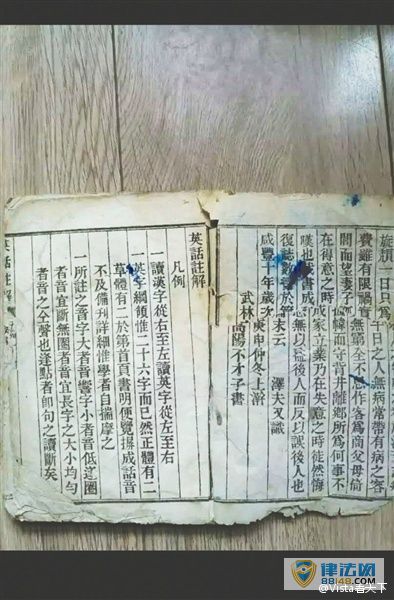 一日只為千日之人無病常帶有病之容
費雖有限禍實無窮第全不念作客為商父母倚
閭而望妻子幃而守背井離鄉所為何事不
在得意之時成家立業乃在失意之時徒然悔
嘆也茲書成無以後人而反以誤後人也
復誌數語於末云 澤夫又識
咸豐十年歲次庚申仲冬上澣
武林高陽不才子書
英話註解
凡例
一讀漢字從右至左讀英字從左至右
一英字綱領惟二十六字而已然正體有二
草體有二於第首頁書明便覽擇成話音
不及備刊詳細惟學者自揣摩之
一所註之音字大者音響字小者音低逐圈
者音宜斷無圈者音宜長字之大小均勻
者音之全聲也逢點者即句之讀斷矣
英話註解
律法网
88148.com
@Vista看天下